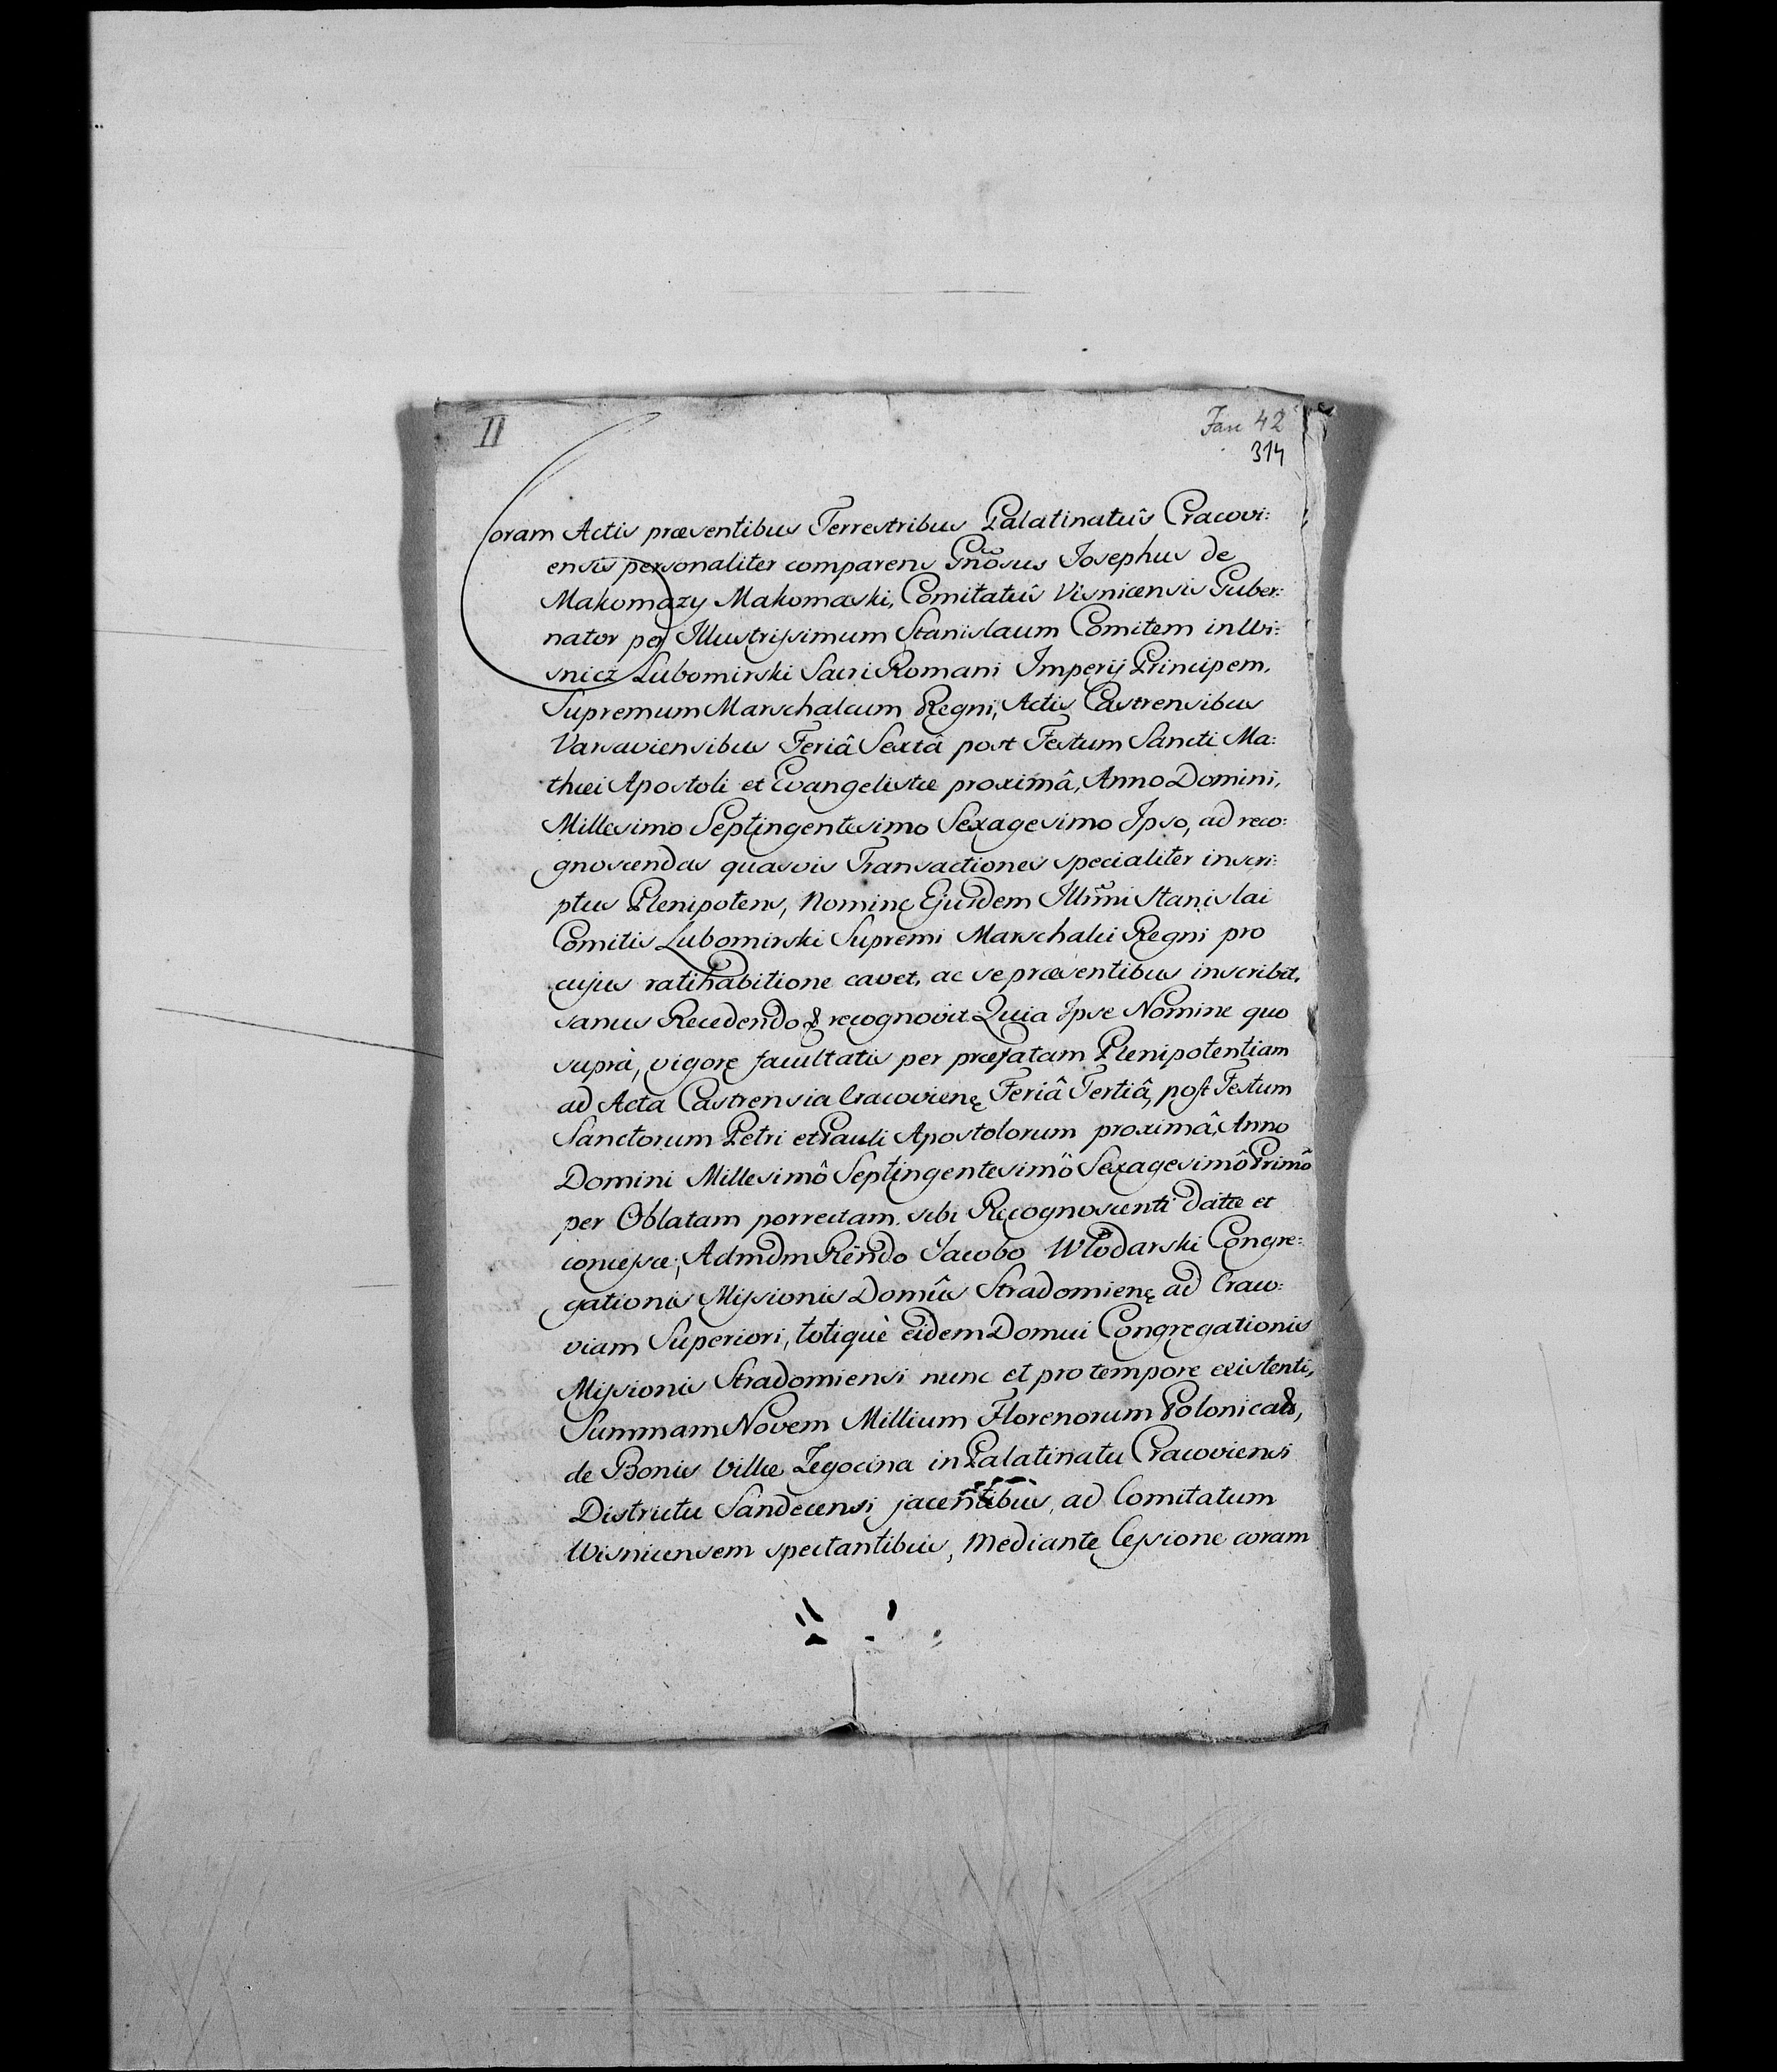 II
Fasc 42
314
Coram Actis præsentibus Terrestribus Palatinatûs Cracovi:
ensis personaliter comparens Gnõsus Josephus de
Makomazy Makomaski, Comitatûs Visnicensis Guber:
nator per Illustrissimum Stanislaum Comitem in Wi:
snicz Lubomirski Sacri Romani Imperij Principem,
Supremum Marschalcum Regni, Actis Castrensibus
Varsaviensibus Feriâ Sextâ post Festum Sancti Ma:
thæi Apostoli et Evangelistæ proximâ, Anno Domini,
Millesimo Septingentesimo Sexagesimo Ipso, ad reco:
gnoscendas quasvis Transactiones specialiter inscri:
ptus Plenipotens, Nomine Ejusdem Illmi Stanislai
Comitis Lubomirski Supremi Marschalci Regni pro
cujus ratihabitione cavet, ac se præsentibus inscribit,
sanus Recedendo & recognovit Quia Ipse Nomine quo
suprà, vigore facultatis per præfatam Plenipotentiam
ad Acta Castrensia Cracovienę Feriâ Tertiâ, post Festum
Sanctorum Petri et Pauli Apostolorum proximâ, Anno
Domini Millesimô Septingentesimô Sexagesimô Primô
per Oblatam porrectam, sibi Recognoscenti datæ et
concessæ; Admdm Rẽndo Jacobo Włodarski Congre:
gationis Missionis Domûs Stradomienę ad Craco:
viam Superiori, totiquè eidem Domui Congregationis
Missionis Stradomiensi nunc et pro tempore existenti,
Summam Novem Millium Florenorum Polonical,
de Bonis Villæ Zegocina in Palatinatu Cracoviensi
Districtu Sandecensi jacentibus, ad Comitatum
Wisnicensem spectantibus, Mediante Cessione coram